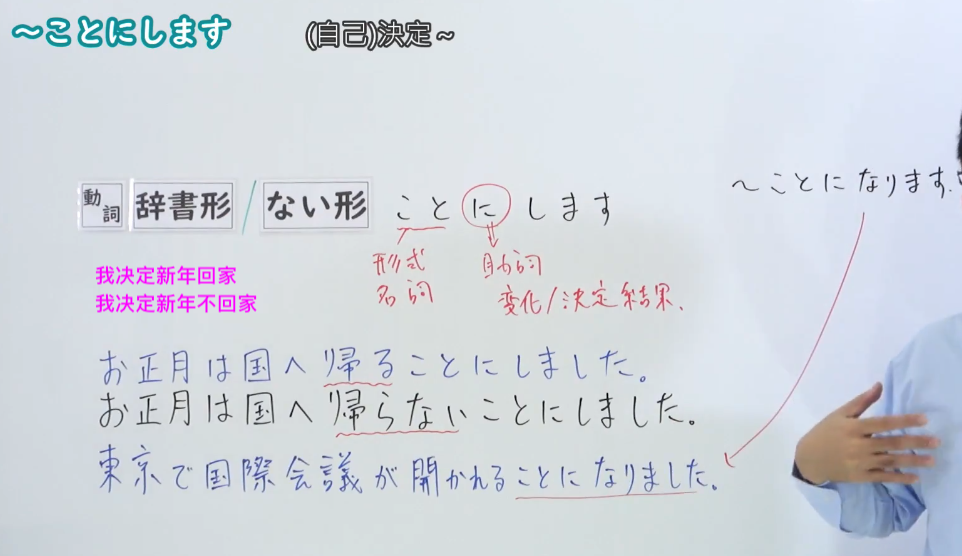 ～ことにします
(自己)決定～
動詞 辞書形 / ない形 ことにします
～ことになります.
形式名詞
助詞
変化/決定結果.
我决定新年回家
我决定新年不回家
お正月は国へ帰ることにしました。
お正月は国へ帰らないことにしました。
東京で国際会議が開かれることになりました。